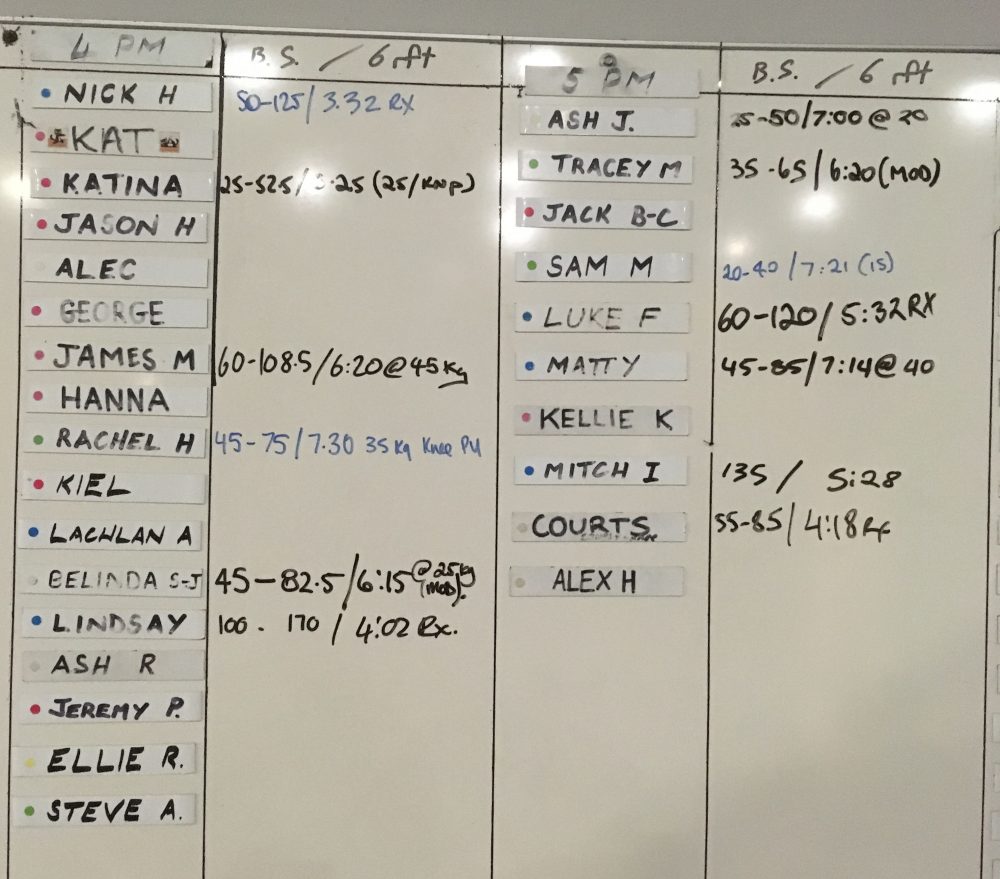 4 PM B.S. / 6 rft
NICK H 50-125/3.32 RX
KAT
KATINA 25-52.5/ (25/KNP)
JASON H
ALEC
GEORGE
JAMES M 60-108.5/6:20@45kg
HANNA
RACHEL H 45-75/7.30 35kg Knee PU
KIEL
LACHLAN A
BELINDA S-J 45-82.5/6:15 @25kg (MOD).
LINDSAY 100 - 170 / 4:02 Rx.
ASH R
JEREMY P.
ELLIE R.
STEVE A.
5 PM B.S. / 6 rft
ASH J. 25-50/7:00 @ 20
TRACEY M 35-65/6:20 (MOD)
JACK B-C
SAM M 20-40 /7:21 (15)
LUKE F 60-120/5:32 RX
MATTY 45-85/7:14@40
KELLIE K
MITCH I 135 / 5:28
COURTS 55-85/4:18 Rx
ALEX H